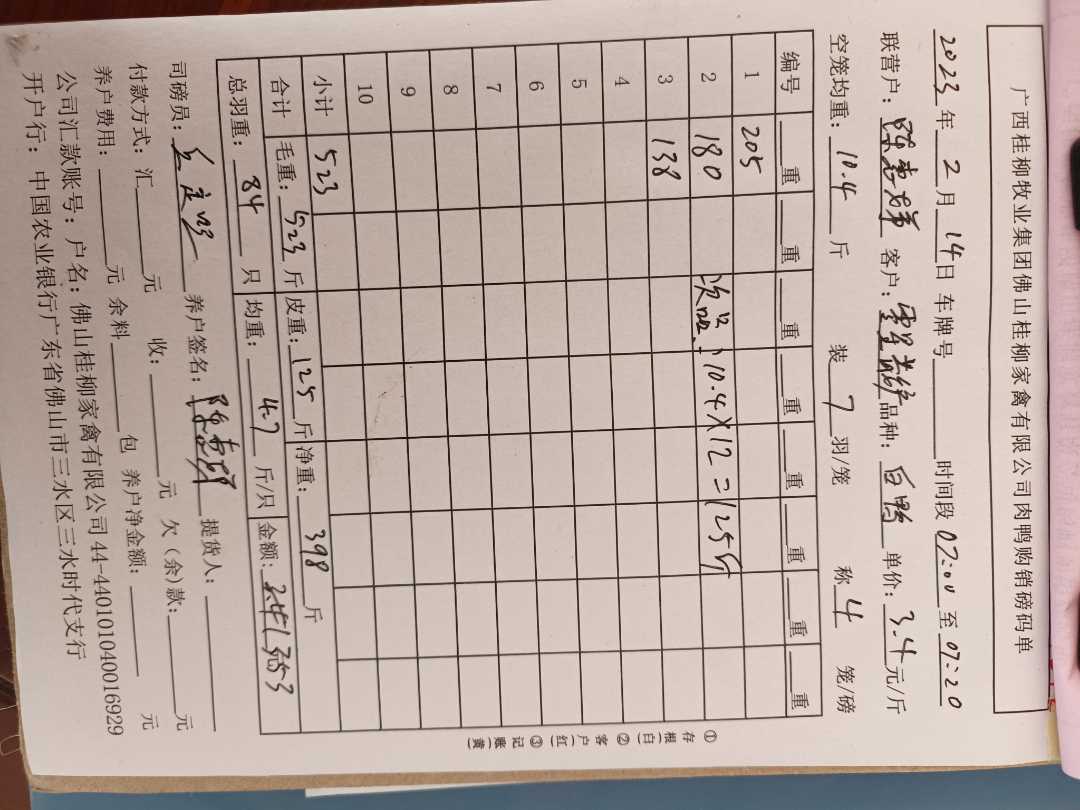 广西桂柳牧业集团佛山桂柳家禽有限公司肉鸭购销磅码单
2023年2月14日 车牌号 时间段07:00至07:20
联营户: 客户: 品种:白鸭 单价:3.4元/斤
空笼均重:10.4斤 装7羽/笼 称4笼/磅
编号 重 重 重 重 重 重 重 重
1 205
2 180 次品:10.4×12=125斤
3 138
4
5
6
7
8
9
10
小计 523
合计 毛重:523斤 皮重:125斤 净重:398斤
总羽重:84只 均重:4.7斤/只 金额:1353
司磅员: 养户签名: 提货人:
付款方式:汇 元 收: 元 欠(余)款: 元
养户费用: 元 余料 包 养户净金额: 元
公司汇款账号:户名:佛山桂柳家禽有限公司44-440101040016929
开户行:中国农业银行广东省佛山市三水区三水时代支行
①存根(白) ②客户(红) ③记账(黄)